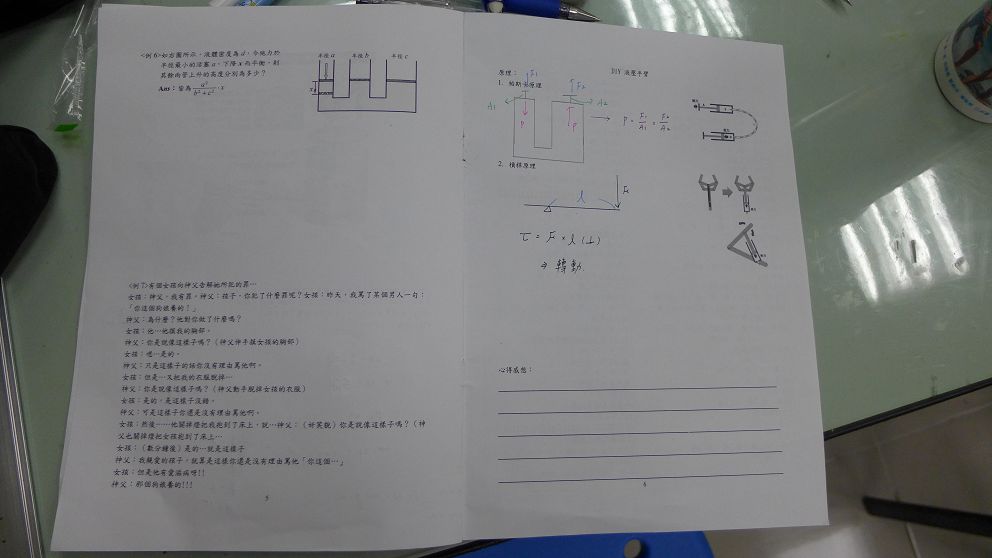 <例 6>如右圖所示,液體密度為 d,今施力於
半徑最小的活塞 a,下降 x 而平衡,則
其餘兩管上升的高度分別為多少?
Ans:皆為 a²/(b²+c²)·x
半徑 a 半徑 b 半徑 c
x
<例 7>有個女孩向神父告解她所犯的罪…
女孩:神父,我有罪。神父:孩子,你犯了什麼罪呢?女孩:昨天,我罵了某個男人一句:
「你這個狗娘養的!」
神父:為什麼?他對你做了什麼嗎?
女孩:他…他摸我的胸部。
神父:你是說像這樣子嗎?(神父伸手摸女孩的胸部)
女孩:嗯…是的。
神父:只是這樣子的話你沒有理由罵他啊。
女孩:但是…又把我的衣服脫掉…
神父:你是說像這樣子嗎?(神父動手脫掉女孩的衣服)
女孩:是的,是這樣子沒錯。
神父:可是這樣子你還是沒有理由罵他啊。
女孩:然後……他關掉燈把我抱到了床上,說…神父:(奸笑貌)你是說像這樣子嗎?(神
父也關掉燈把女孩抱到了床上…
女孩:(數分鐘後)是的…就是這樣子
神父:我親愛的孩子,就算是這樣你還是沒有理由罵他「你這個…」
女孩:但是他有愛滋病呀!!
神父:那個狗娘養的!!!
5
DIY 液壓手臂
原理:
1. 帕斯卡原理
F1 F2
A1 A2
P P
→ P = F1/A1 = F2/A2
2. 槓桿原理
l
F
τ = F × l (⊥)
⇒ 轉動.
心得感想:
6